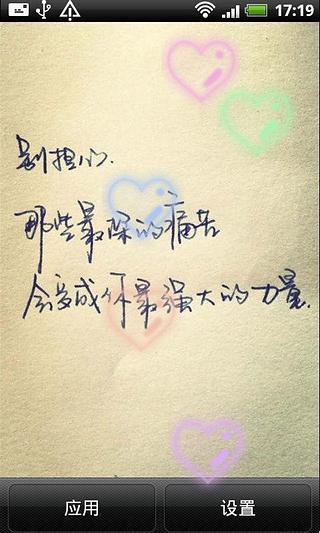 17:19
别担心.
那些最深的痛苦
会变成你最强大的力量.
应用
设置